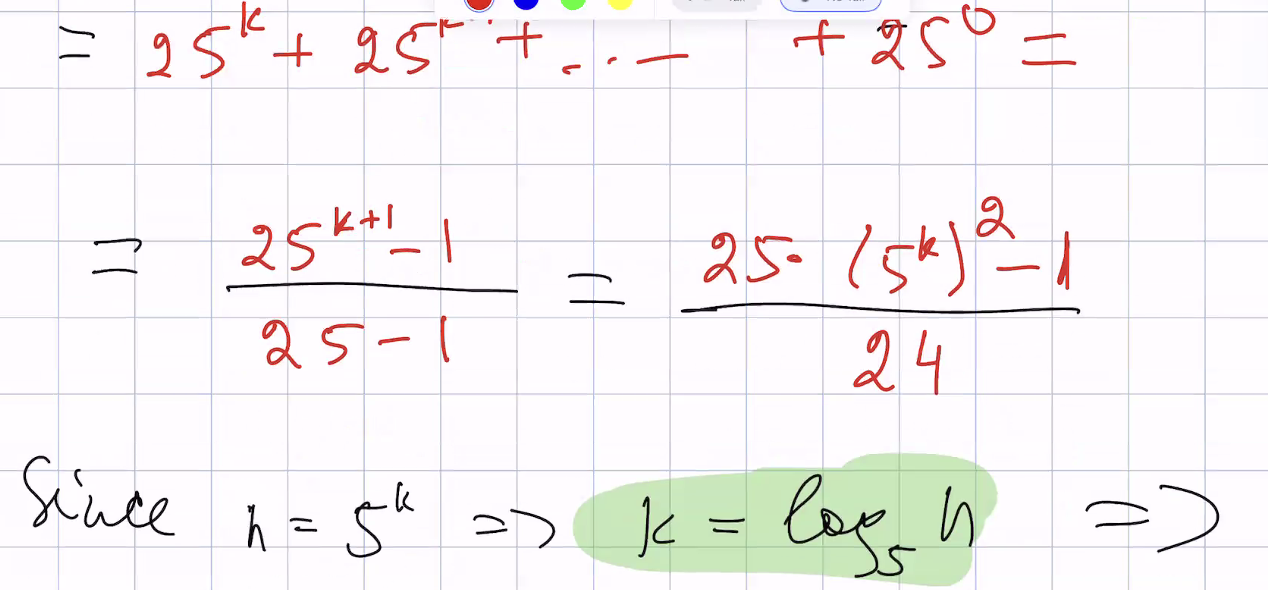 = 25^k + 25^k + ... + 25^0 =
= \frac{25^{k+1} - 1}{25 - 1} = \frac{25 \cdot (5^k)^2 - 1}{24}
Since n = 5^k => k = log_5 n =>